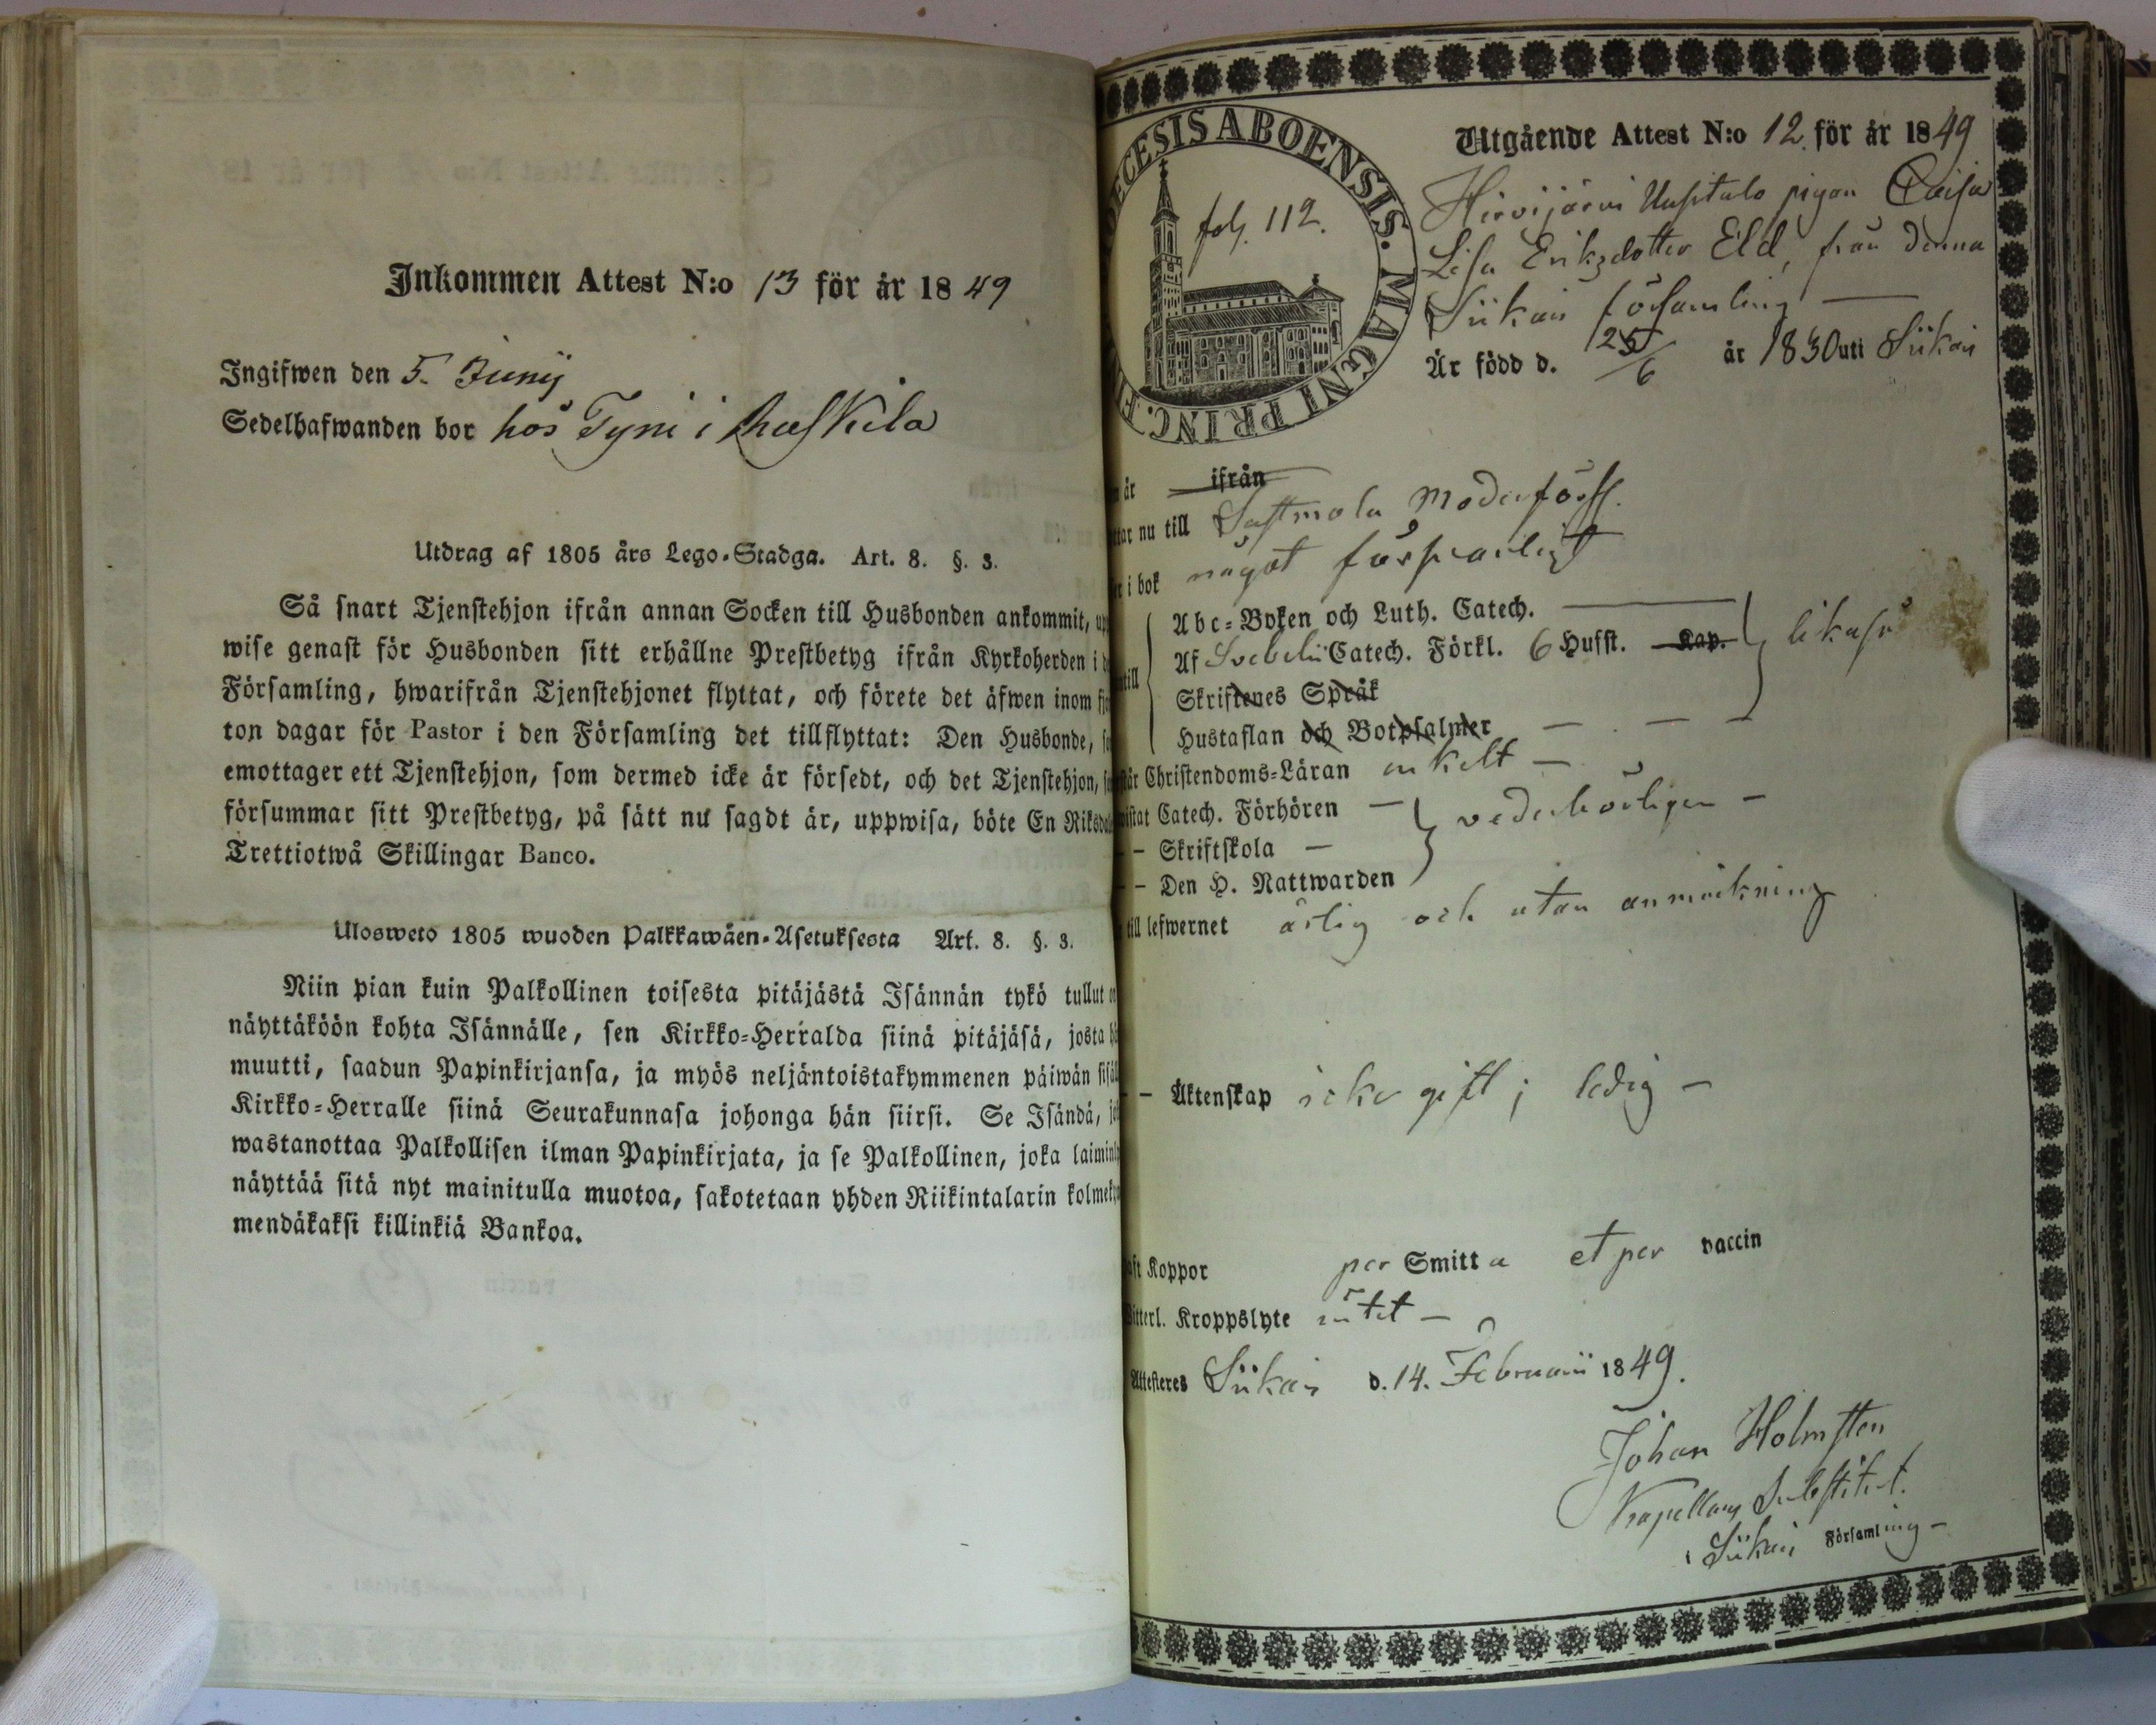 Inkommen Attest N:o 13 för år 1849
Ingifwen den 5. Junij
Sedelhafwanden bor hos Tyni i
Utdrag af 1805 års Lego-Stadga. Art. 8. §. 3.
Så snart Tjenstehjon ifrån annan Socken till Husbonden ankommit, up
wise genast för Husbonden sitt erhållne Prestbetyg ifrån Kyrkoherden i
Församling, hwarifrån Tjenstehjonet flyttat, och förete det äfwen inom
ton dagar för Pastor i den Församling det tillflyttat: Den Husbonde,
emottager ett Tjenstehjon, som dermed icke är försedt, och det Tjenstehjon,
försummar sitt Prestbetyg, på sätt nu sagdt är, uppwisa, böte En Riksd
Trettiotwå Skillingar Banco.
Ulosweto 1805 wuoden Palkkawäen-Asetuksesta Art. 8. §. 3.
Niin pian kuin Palkollinen toisesta pitäjästä Isännän tykö tullut
näyttäköön kohta Isännälle, sen Kirkko-Herralda siinä pitäjäsä, josta
muutti, saadun Papinkirjansa, ja myös neljäntoistakymmenen päiwän sisä
Kirkko-Herralle siinä Seurakunnasa johonga hän siirsi. Se Isändä,
wastanottaa Palkollisen ilman Papinkirjata, ja se Palkollinen, joka laimin
näyttää sitä nyt mainitulla muotoa, sakotetaan yhden Riikintalarin kolmeky
mendäkaksi killinkiä Bankoa.
ECESIS ABOENSIS. MAGNI PRINC. F
fol. 112.
Utgående Attest N:o 12. för år 1849
Hirvijärvi Uusitalo pigan Caisa
Lisa Eriksdotter Eld, från denna
Siikais församling
Är född d. 25/6 år 1830 uti Siikais
är ifrån
tar nu till Sastmola Moderförs.
i bok något försvarligt
Abc-Boken och Luth. Catech.
till Af Svebelii Catech. Förkl. 6 Hufst. Kap. likaså
Skriftenes Språk
Hustaflan och Botpsalmer
Christendoms-Läran enkelt
istat Catech. Förhören vederbörligen
- Skriftskola
- Den H. Nattwarden
till lefwernet ärlig och utan anmärkning
- Äktenskap icke gift; ledig
ft Koppor per Smitta et per vaccin
itterl. Kroppslyte intet
Attesteres Siikais d. 14. Februarii 1849.
Johan Holmsten
Kapellans Substitut.
i Siikais Församling